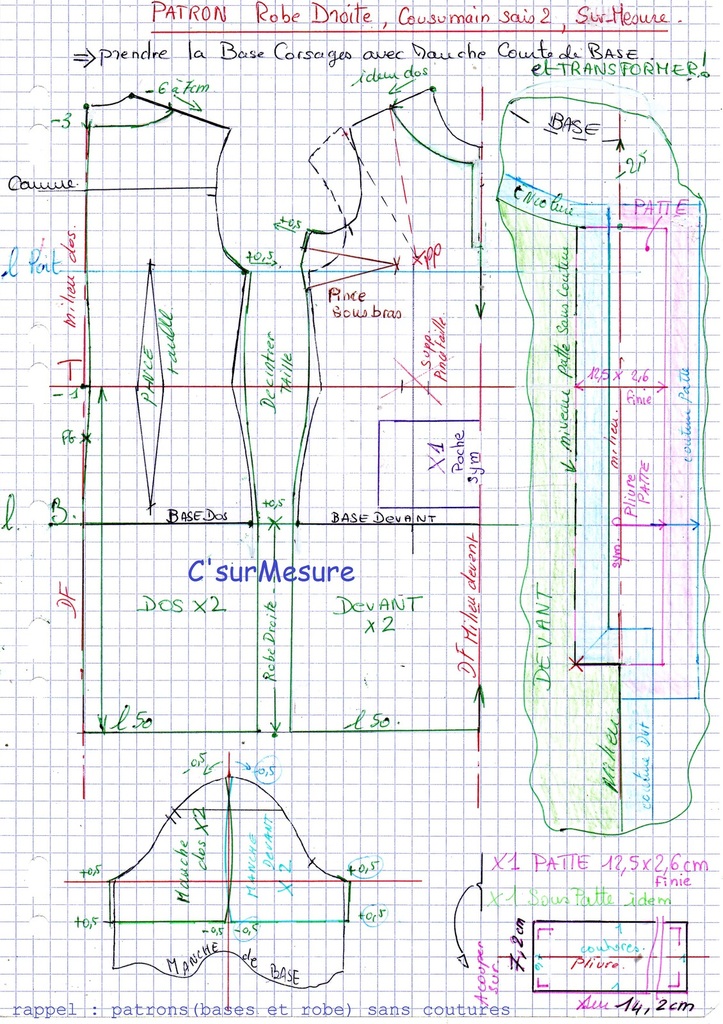 PATRON Robe Droite, Cousumain sais 2, Sur-Mesure.
⇒ prendre la Base Corsages avec Manche Courte de BASE
et TRANSFORMER!
-6 à 7cm
idem dos
-3
BASE
-2,5
Carrure
Encolure
PATTE
+0,5
+0,5
XPP
Pince
Sous bras
milieu dos.
T
-1
PINCE
Decintrer
TAILLE
Supp.
Pince Taille
↓ niveau Patte Sans Couture
12,5 x 2,6
Finie
milieu.
Pliure
PATTE
couture Patte
sym.
X1
Poche
sym
l. B.
BASE DOS
+0,5
BASE DEVANT
C'surMesure
DF
DOS X2
Robe Droite
DEVANT
X2
DF Milieu devant
DEVANT
l 50
l 50.
Milieu
couture DVT
-0,5
-0,5
Manche
dos X2
MANCHE
DEVANT
X 2
+0,5
+0,5
+0,5
-0,5
-0,5
+0,5
MANCHE de BASE
X1 PATTE 12,5x2,6cm
Finie
X1 Sous Patte idem
A couper
sur
7,2cm
1
coutures
Pliure.
1
sur 14,2cm
rappel : patrons(bases et robe) sans coutures